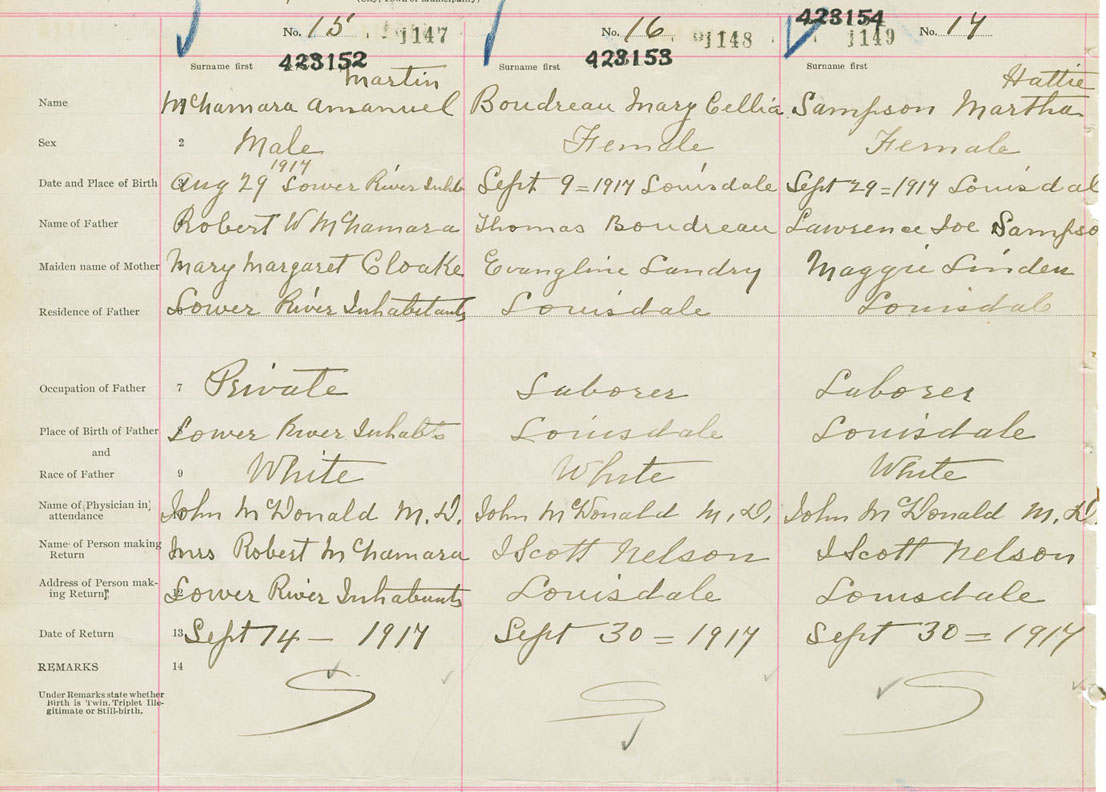 (City, Town or Municipality)
No. 15 1147 No. 16 1148 423154 1149 No. 17
Surname first 423152 Surname first 423153 Surname first
Martin Hattie
Name McNamara Amanuel Boudreau Mary Cellia Sampson Martha
Sex 2 Male Female Female
1917
Date and Place of Birth Aug 29 Lower River Inhab Sept 9=1917 Louisdale Sept 29=1917 Louisdal
Name of Father Robert W McNamara Thomas Boudreau Lawrence Joe Sampso
Maiden name of Mother Mary Margaret Cloake Evangline Landry Maggie Linden
Residence of Father Lower River Inhabitants Louisdale Louisdale
Occupation of Father 7 Private Laborer Laborer
Place of Birth of Father 8 Lower River Inhabts Louisdale Louisdale
and
Race of Father 9 White White White
Name of Physician in attendance John McDonald M.D. John McDonald M.D. John McDonald M.D.
Name of Person making Return Mrs Robert McNamara I Scott Nelson I Scott Nelson
Address of Person making Return 12 Lower River Inhabants Louisdale Louisdale
Date of Return 13 Sept 14 - 1917 Sept 30 = 1917 Sept 30 = 1917
REMARKS 14
Under Remarks state whether
Birth is Twin. Triplet Ille-
gitimate or Still-birth.
S S S